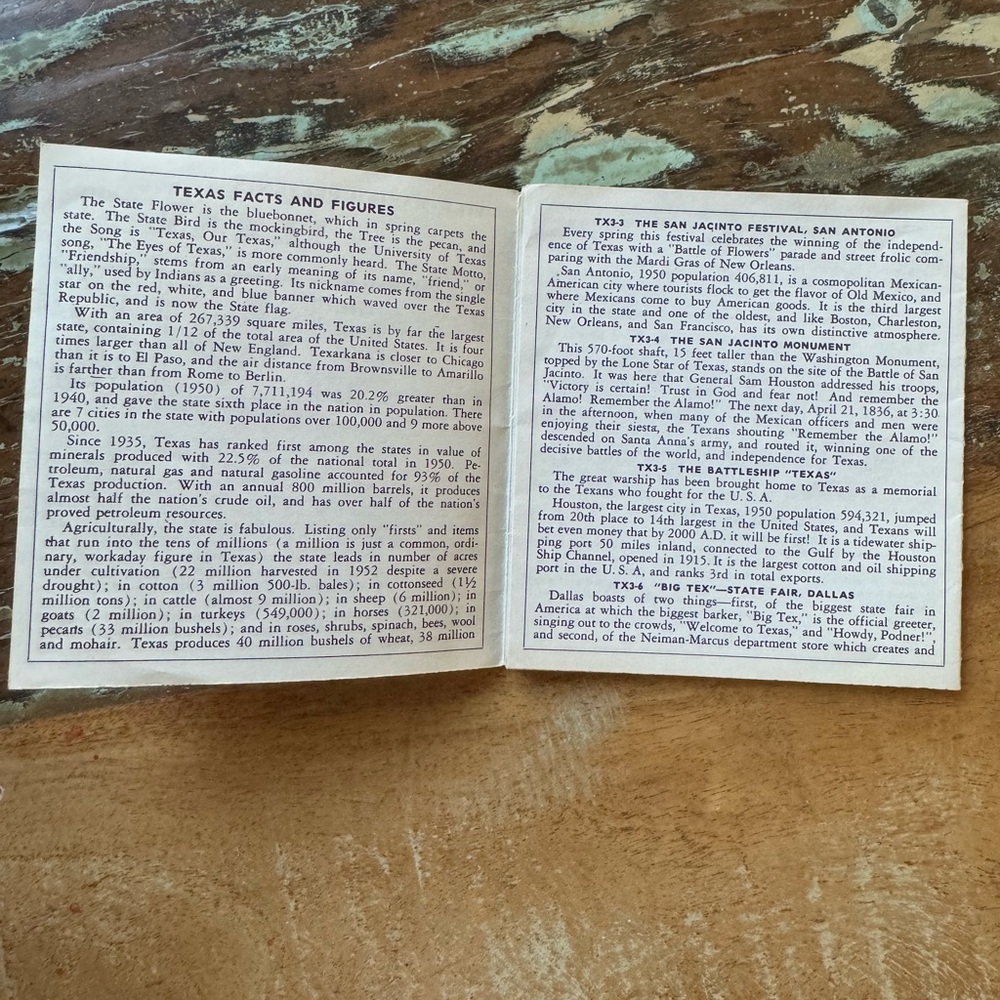 TEXAS FACTS AND FIGURES
The State Flower is the bluebonnet, which in spring carpets the
state. The State Bird is the mockingbird, the Tree is the pecan, and
the Song is "Texas, Our Texas," although the University of Texas
song, "The Eyes of Texas," is more commonly heard. The State Motto,
"Friendship," stems from an early meaning of its name, "friend," or
"ally," used by Indians as a greeting. Its nickname comes from the single
star on the red, white, and blue banner which waved over the Texas
Republic, and is now the State flag.
With an area of 267,339 square miles, Texas is by far the largest
state, containing 1/12 of the total area of the United States. It is four
times larger than all of New England. Texarkana is closer to Chicago
than it is to El Paso, and the air distance from Brownsville to Amarillo
is farther than from Rome to Berlin.
Its population (1950) of 7,711,194 was 20.2% greater than in
1940, and gave the state sixth place in the nation in population. There
are 7 cities in the state with populations over 100,000 and 9 more above
50,000.
Since 1935, Texas has ranked first among the states in value of
minerals produced with 22.5% of the national total in 1950. Pe-
troleum, natural gas and natural gasoline accounted for 93% of the
Texas production. With an annual 800 million barrels, it produces
almost half the nation's crude oil, and has over half of the nation's
proved petroleum resources.
Agriculturally, the state is fabulous. Listing only "firsts" and items
that run into the tens of millions (a million is just a common, ordi-
nary, workaday figure in Texas) the state leads in number of acres
under cultivation (22 million harvested in 1952 despite a severe
drought); in cotton (3 million 500-lb. bales); in cottonseed (1½
million tons); in cattle (almost 9 million); in sheep (6 million); in
goats (2 million); in turkeys (549,000); in horses (321,000); in
pecans (33 million bushels); and in roses, shrubs, spinach, bees, wool
and mohair. Texas produces 40 million bushels of wheat, 38 million
TX3-3 THE SAN JACINTO FESTIVAL, SAN ANTONIO
Every spring this festival celebrates the winning of the independ-
ence of Texas with a "Battle of Flowers" parade and street frolic com-
paring with the Mardi Gras of New Orleans.
San Antonio, 1950 population 406,811, is a cosmopolitan Mexican-
American city where tourists flock to get the flavor of Old Mexico, and
where Mexicans come to buy American goods. It is the third largest
city in the state and one of the oldest, and like Boston, Charleston,
New Orleans, and San Francisco, has its own distinctive atmosphere.
TX3-4 THE SAN JACINTO MONUMENT
This 570-foot shaft, 15 feet taller than the Washington Monument,
topped by the Lone Star of Texas, stands on the site of the Battle of San
Jacinto. It was here that General Sam Houston addressed his troops,
"Victory is certain! Trust in God and fear not! And remember the
Alamo! Remember the Alamo!" The next day, April 21, 1836, at 3:30
in the afternoon, when many of the Mexican officers and men were
enjoying their siesta, the Texans shouting "Remember the Alamo!"
descended on Santa Anna's army, and routed it, winning one of the
decisive battles of the world, and independence for Texas.
TX3-5 THE BATTLESHIP "TEXAS"
The great warship has been brought home to Texas as a memorial
to the Texans who fought for the U. S. A.
Houston, the largest city in Texas, 1950 population 594,321, jumped
from 20th place to 14th largest in the United States, and Texans will
bet even money that by 2000 A.D. it will be first! It is a tidewater ship-
ping port 50 miles inland, connected to the Gulf by the Houston
Ship Channel, opened in 1915. It is the largest cotton and oil shipping
port in the U. S. A, and ranks 3rd in total exports.
TX3-6 "BIG TEX"—STATE FAIR, DALLAS
Dallas boasts of two things—first, of the biggest state fair in
America at which the biggest barker, "Big Tex," is the official greeter,
singing out to the crowds, "Welcome to Texas," and "Howdy, Podner!",
and second, of the Neiman-Marcus department store which creates and